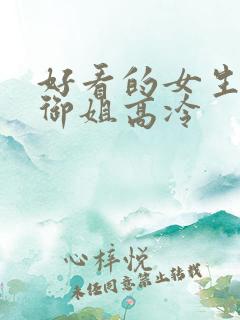 好看的女生
御姐高冷
心梓悦
未经同意禁止转载